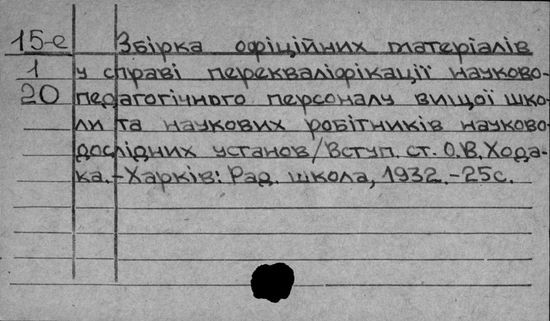 15-е Збірка офіційних матеріалів
1 у справі перекваліфікації науково-
20 педагогічного персоналу вищої шко-
ли та наукових робітників науково-
дослідних установ/Вступ. ст. О.В. Хода-
ка.-Харків: Рад. школа, 1932.-25с.